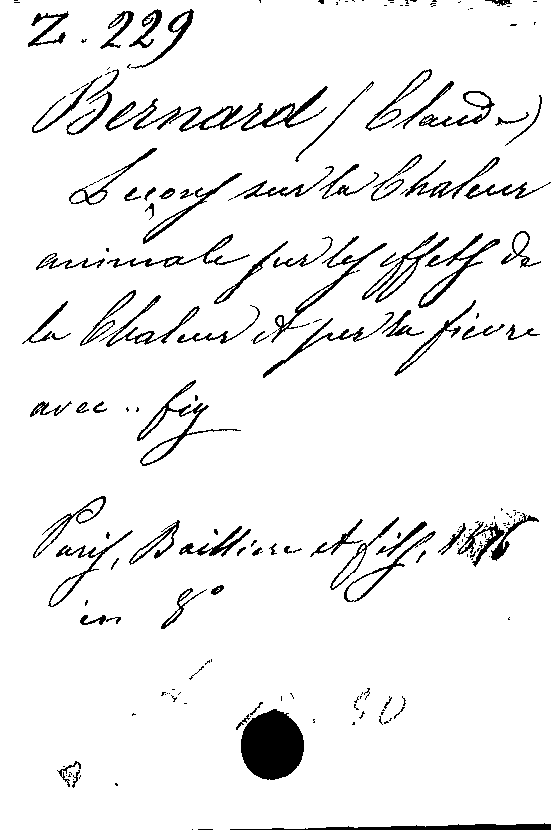 Z. 229
Bernard (Claude)
Leçons sur la Chaleur
animale sur les effets de
la Chaleur et sur la fievre
avec .. fig
Paris, Bailliere et fils, 1876
in 8°